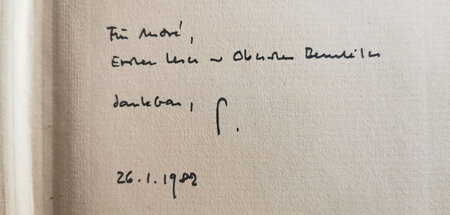 Für André,
Ersten Leser u Obersten Beurteiler
dankbar, P.
26.1.1982